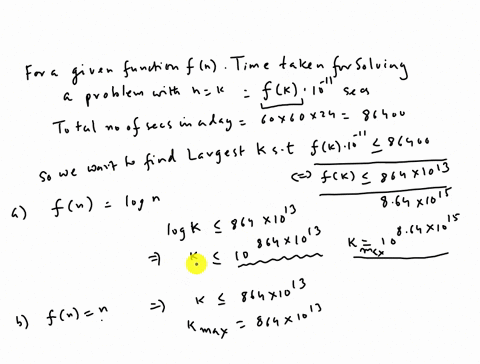 For a given function f(n). Time taken for solving
a problem with n=k = f(k)·10^-11 secs
Total no of secs in a day = 60×60×24 = 86400
So we want to find Largest k s.t f(k)·10^-11 ≤ 86400
(=) f(k) ≤ 864×10^13
8.64×10^15
a) f(n) = log n
log k ≤ 864×10^13
⇒ k ≤ 10^864×10^13 k max = 10^8.64×10^15
b) f(n)=n ⇒ k ≤ 864×10^13
k max = 864×10^13